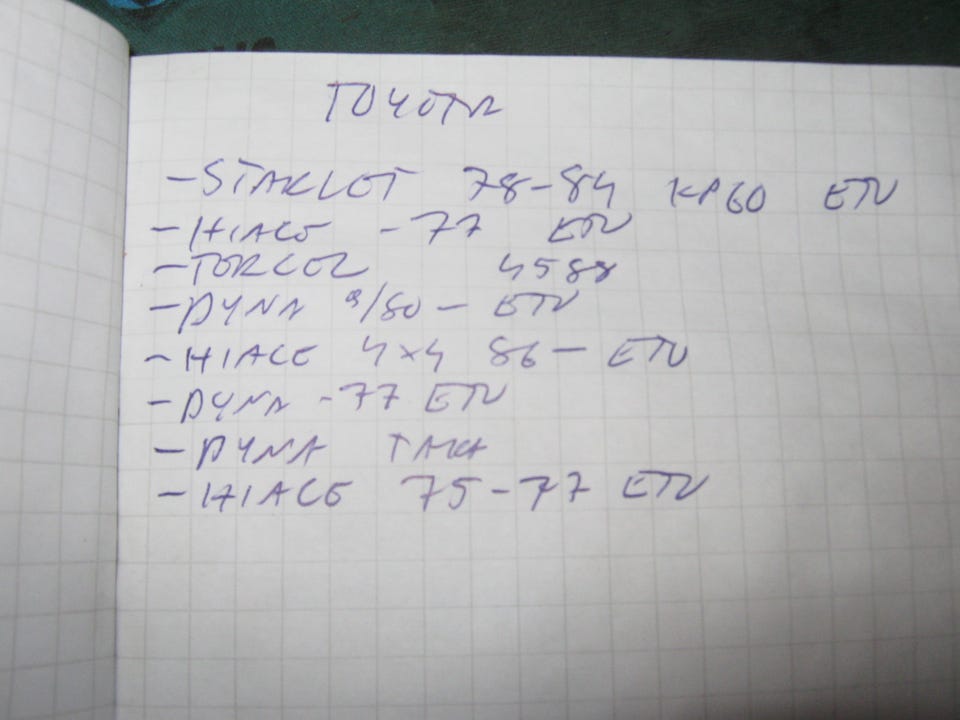 TOYOTA
- STARLET 78-84 KP60 ETU
- HIACE -77 ETU
- TERCEL 4588
- DYNA 9/80 - ETU
- HIACE 4x4 86 - ETU
- DYNA -77 ETU
- DYNA TAKA
- HIACE 75-77 ETU